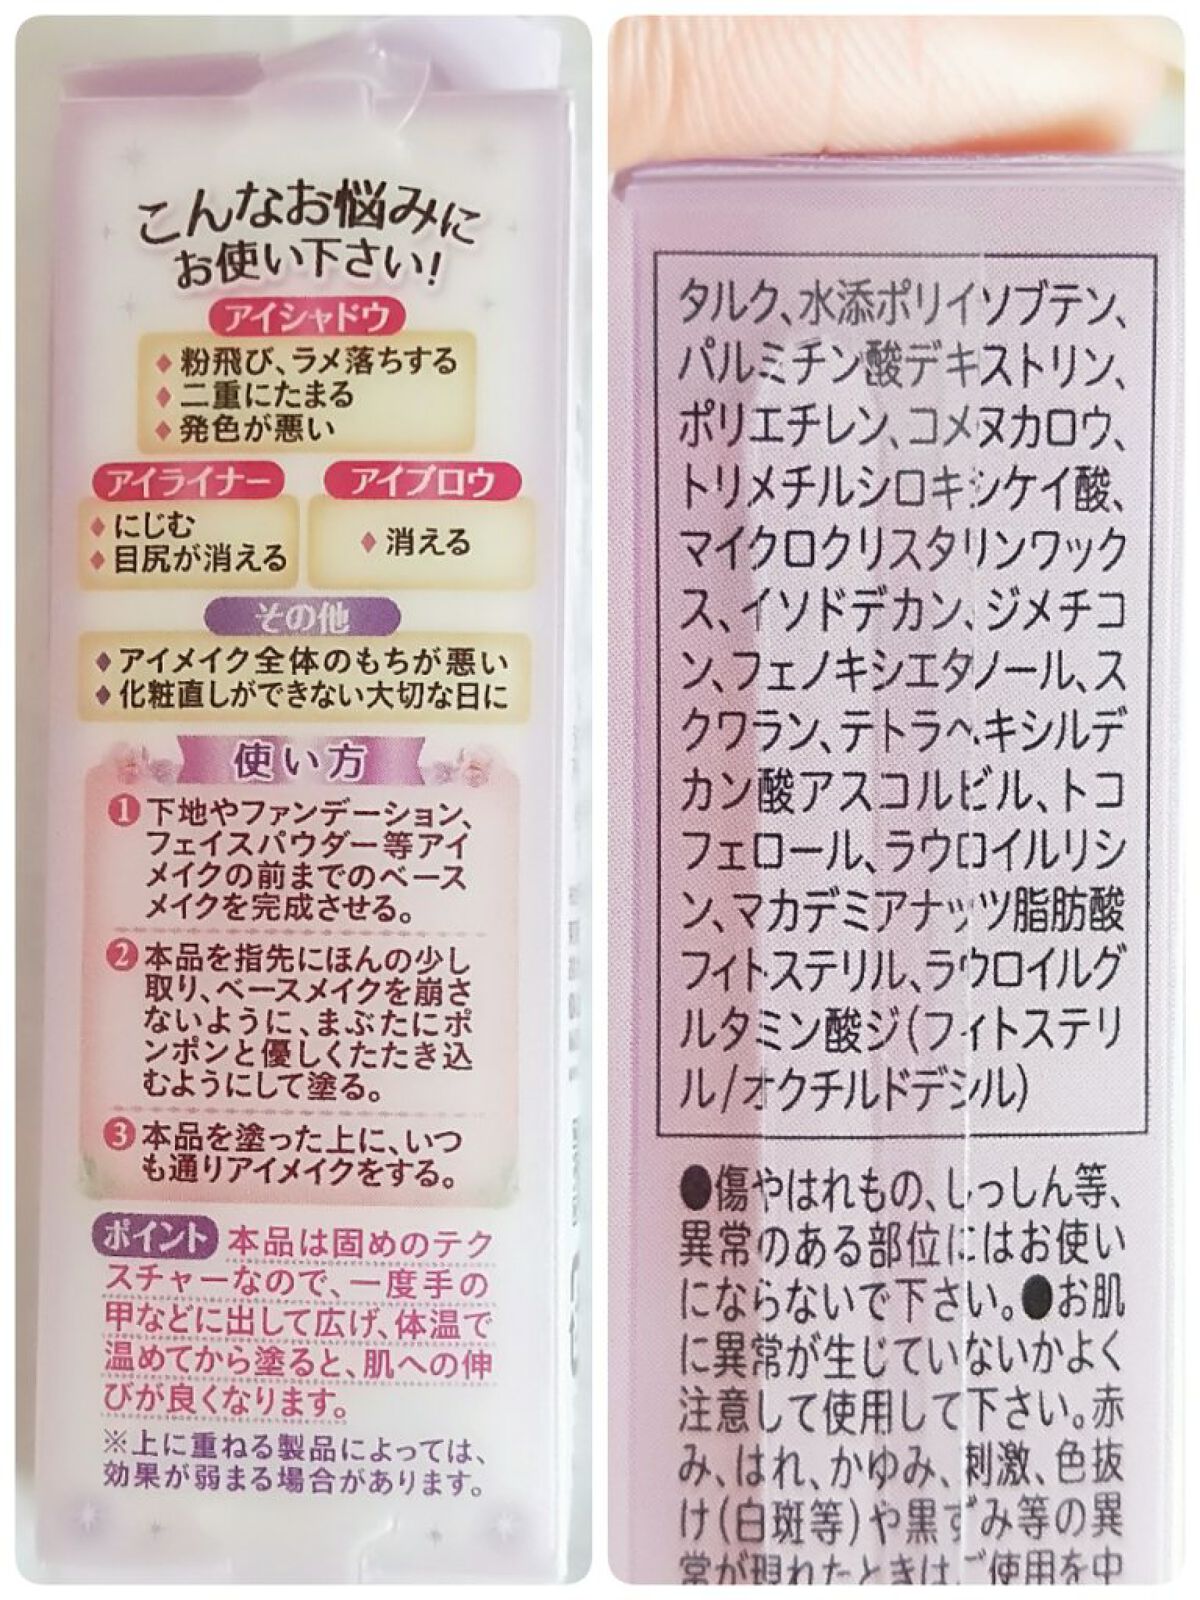 こんなお悩みに
お使い下さい!
アイシャドウ
◆粉飛び、ラメ落ちする
◆二重にたまる
◆発色が悪い
アイライナー
◆にじむ
◆目尻が消える
アイブロウ
◆消える
その他
◆アイメイク全体のもちが悪い
◆化粧直しができない大切な日に
使い方
❶下地やファンデーション、
フェイスパウダー等アイ
メイクの前までのベース
メイクを完成させる。
❷本品を指先にほんの少し
取り、ベースメイクを崩さ
ないように、まぶたにポ
ンポンと優しくたたき込
むようにして塗る。
❸本品を塗った上に、いつ
も通りアイメイクをする。
ポイント 本品は固めのテク
スチャーなので、一度手の
甲などに出して広げ、体温で
温めてから塗ると、肌への伸
びが良くなります。
※上に重ねる製品によっては、
効果が弱まる場合があります。
タルク、水添ポリイソブテン、
パルミチン酸デキストリン、
ポリエチレン、コメヌカロウ、
トリメチルシロキシケイ酸、
マイクロクリスタリンワック
ス、イソドデカン、ジメチコ
ン、フェノキシエタノール、ス
クワラン、テトラヘキシルデ
カン酸アスコルビル、トコ
フェロール、ラウロイルリシ
ン、マカデミアナッツ脂肪酸
フィトステリル、ラウロイルグ
ルタミン酸ジ(フィトステリ
ル/オクチルドデシル)
●傷やはれもの、しっしん等、
異常のある部位にはお使い
にならないで下さい。●お肌
に異常が生じていないかよく
注意して使用して下さい。赤
み、はれ、かゆみ、刺激、色抜
け(白斑等)や黒ずみ等の異
常が現れたときは、ご使用を中